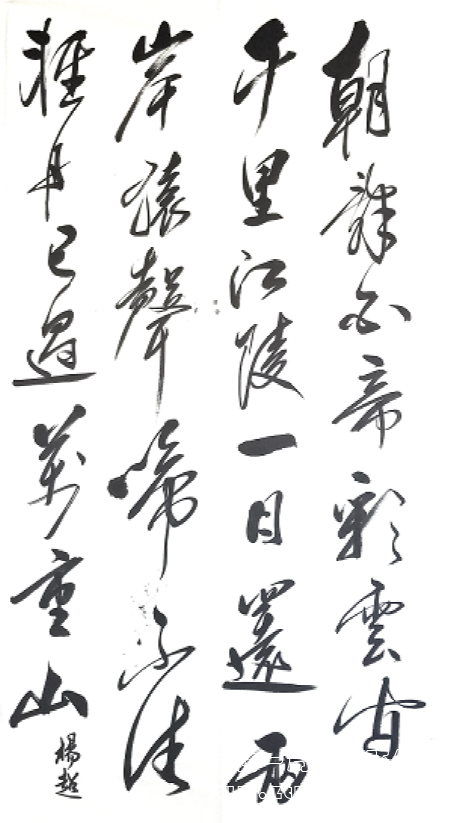 朝辭白帝彩雲間
千里江陵一日還兩
岸猿聲啼不住
輕舟已過萬重山
楊越